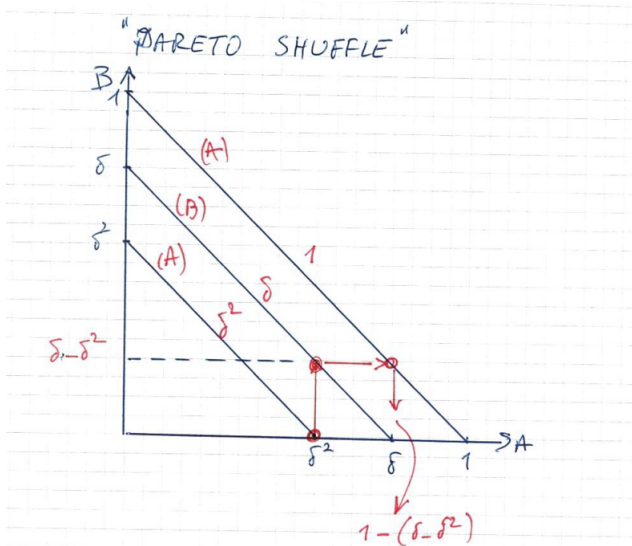 "PARETO SHUFFLE"
B
1
(A)
δ
(B)
δ²
(A)
1
δ
δ²
δ-δ²
δ²
δ
1
A
1-(δ-δ²)